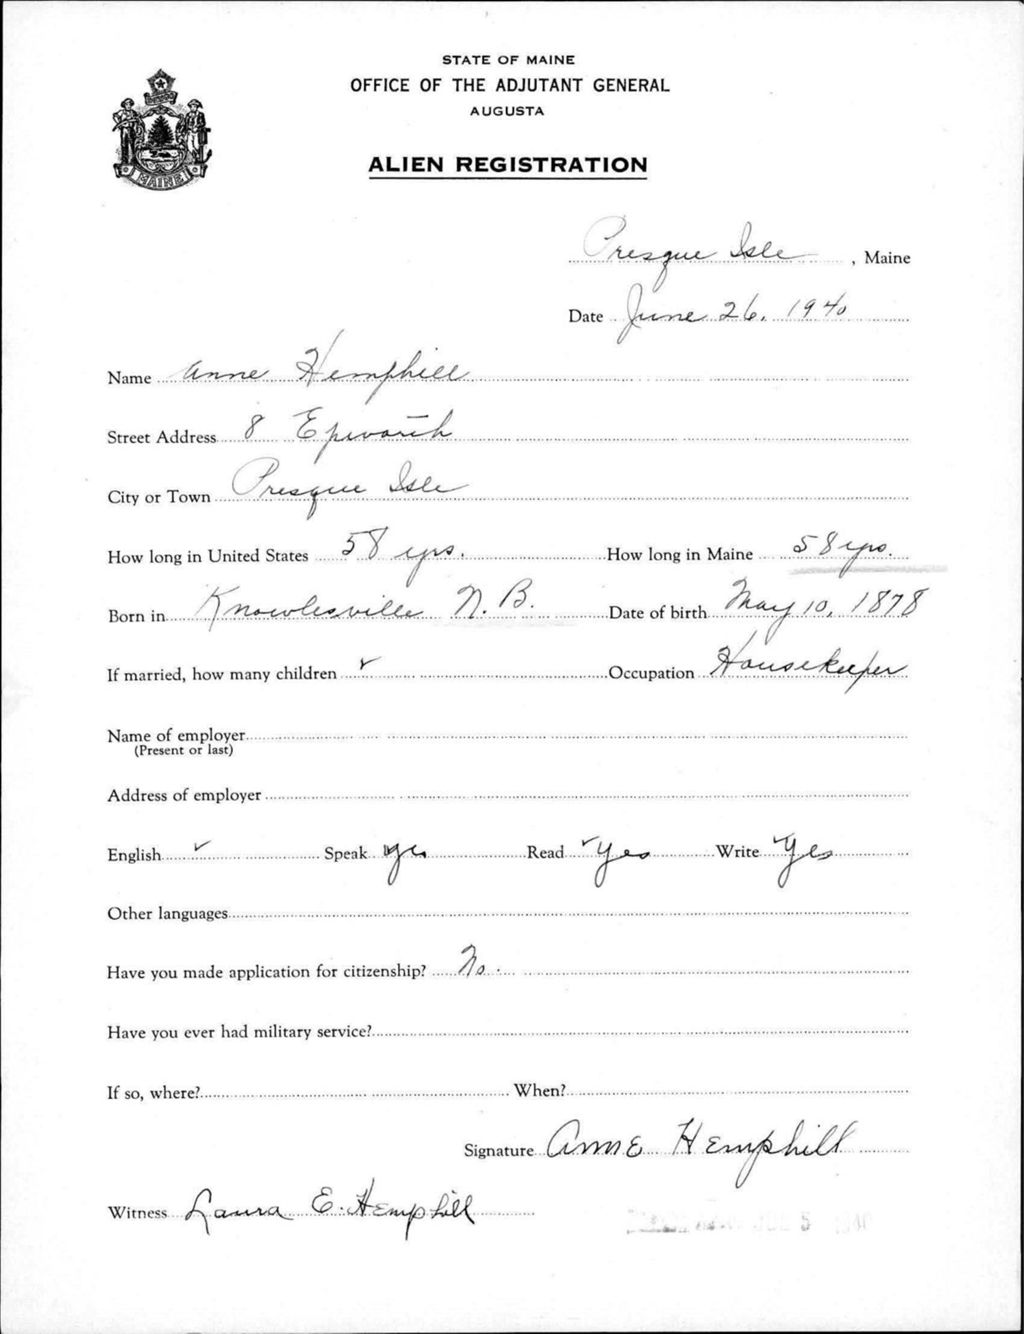 STATE OF MAINE
OFFICE OF THE ADJUTANT GENERAL
AUGUSTA
MAINE
ALIEN REGISTRATION
Presque Isle, Maine
Date June 26, 1940
Name Anne Hemphill
Street Address 8 Epworth
City or Town Presque Isle
How long in United States 58 yrs. How long in Maine 58 yrs.
Born in Knowlesville N.B. Date of birth May 10, 1878
If married, how many children ✓ Occupation Housekeeper
Name of employer
(Present or last)
Address of employer
English ✓ Speak yes Read ✓ Yes Write ✓ Yes
Other languages
Have you made application for citizenship? No.
Have you ever had military service?
If so, where? When?
Signature Anne Hemphill
Witness Laura E. Hemphill
5 1940